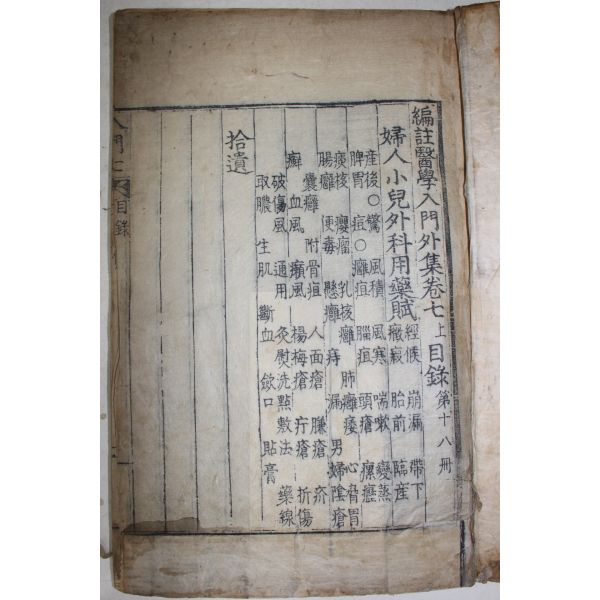 編註醫學入門外集卷七上目錄 第十八冊
婦人小兒外科用藥賦 經候 崩漏 帶下
癥瘕 胎前 臨產
產後○驚 風積 風寒 喘嗽 變蒸
脾胃 痘○癰疽 腦疽 頭瘡 瘰癧
痰核 癭瘤 乳核癰 肺癰痿 心胃
腸癰 便毒 懸癰 痔 漏 男婦陰瘡
囊癰 附骨疽 人面瘡 臁瘡 疥
癬 血風 癘風 楊梅瘡 疔瘡 折傷
破傷風 通用 灸熨洗點敷法 藥線
取膿 生肌 斷血 斂口 貼膏
拾遺
入門七 目錄